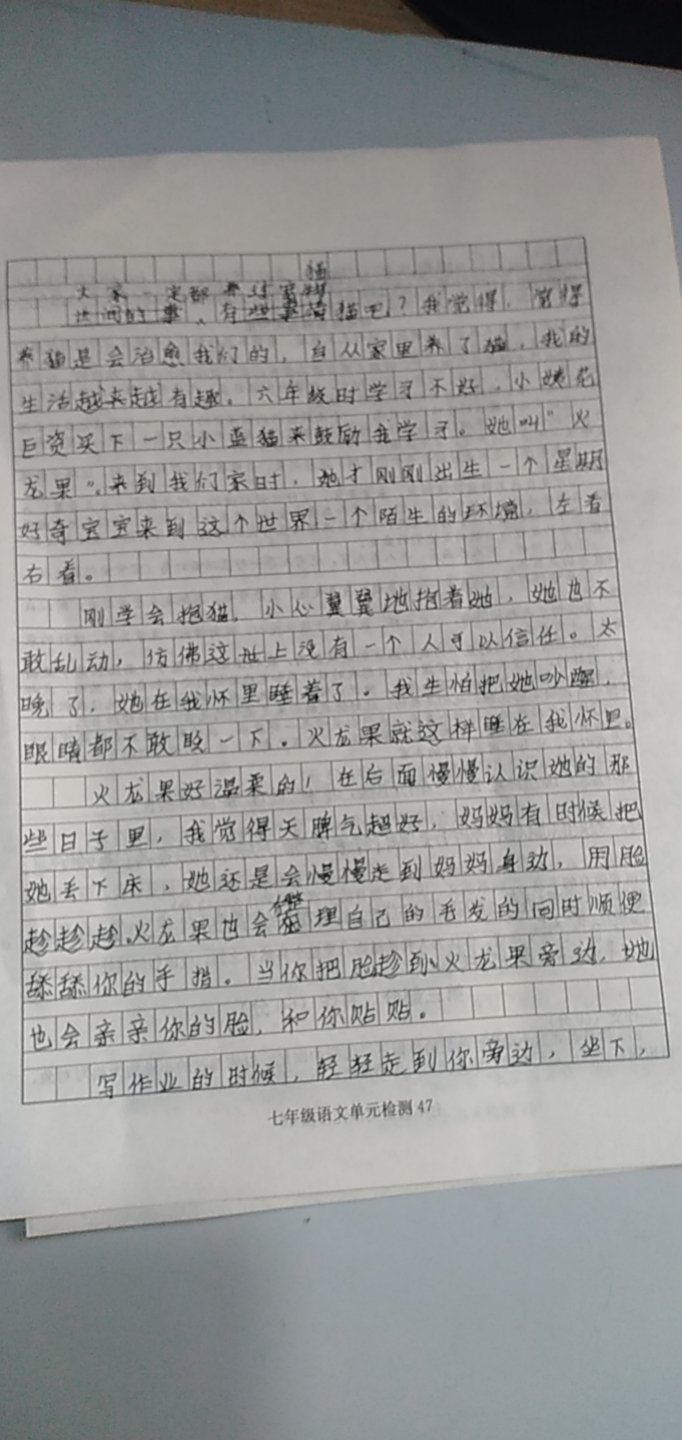 猫
大家一定都养过
世间的事、有些事情猫吧？我觉得，觉得
养猫是会治愈我们的，自从家里养了猫，我的
生活越来越有趣。六年级时学习不好，小姨花
巨资买下一只小蓝猫来鼓励我学习。她叫"火
龙果"。来到我们家时，她才刚刚出生一个星期
好奇宝宝来到这个世界一个陌生的环境，左看
右看。
刚学会抱猫，小心翼翼地抱着她，她也不
敢乱动，仿佛这世上没有一个人可以信任。太
晚了，她在我怀里睡着了。我生怕把她吵醒，
眼睛都不敢眨一下。火龙果就这样睡在我怀里。
火龙果好温柔的！在后面慢慢认识她的那
些日子里，我觉得天脾气超好，妈妈有时候把
她丢下床，她还是会慢慢走到妈妈身边，用脸
趁趁趁。火龙果也会整理自己的毛发的同时顺便
舔舔你的手指。当你把脸趁到火龙果旁边，她
也会亲亲你的脸，和你贴贴。
写作业的时候，轻轻走到你旁边，坐下，
七年级语文单元检测 47